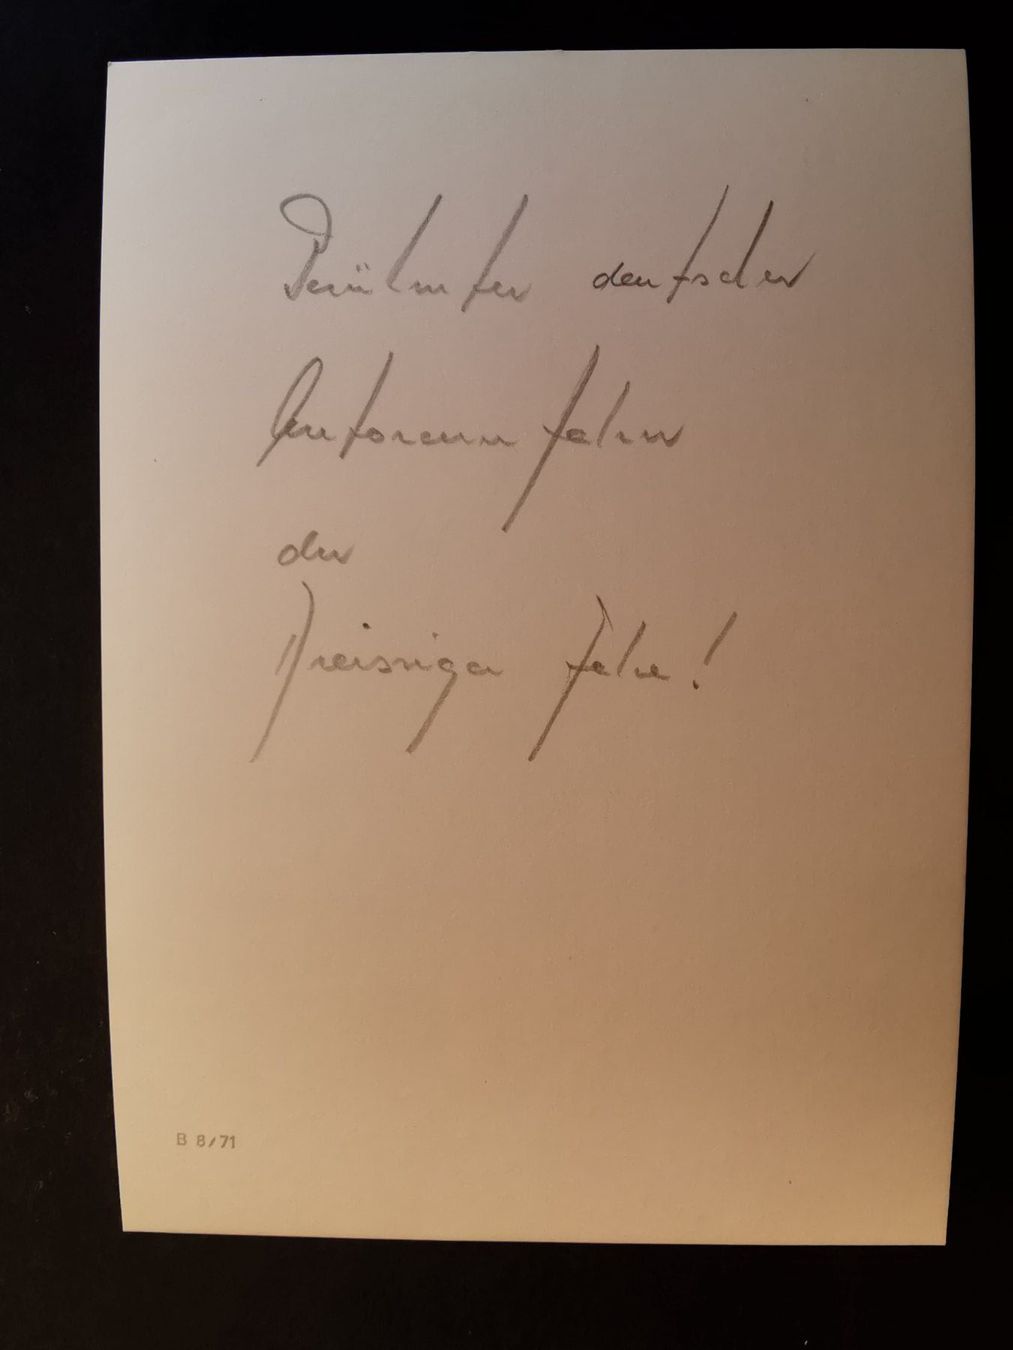 Berühmter deutscher
Autorennfahrer
der
Dreissiger Jahre!
B 8/71